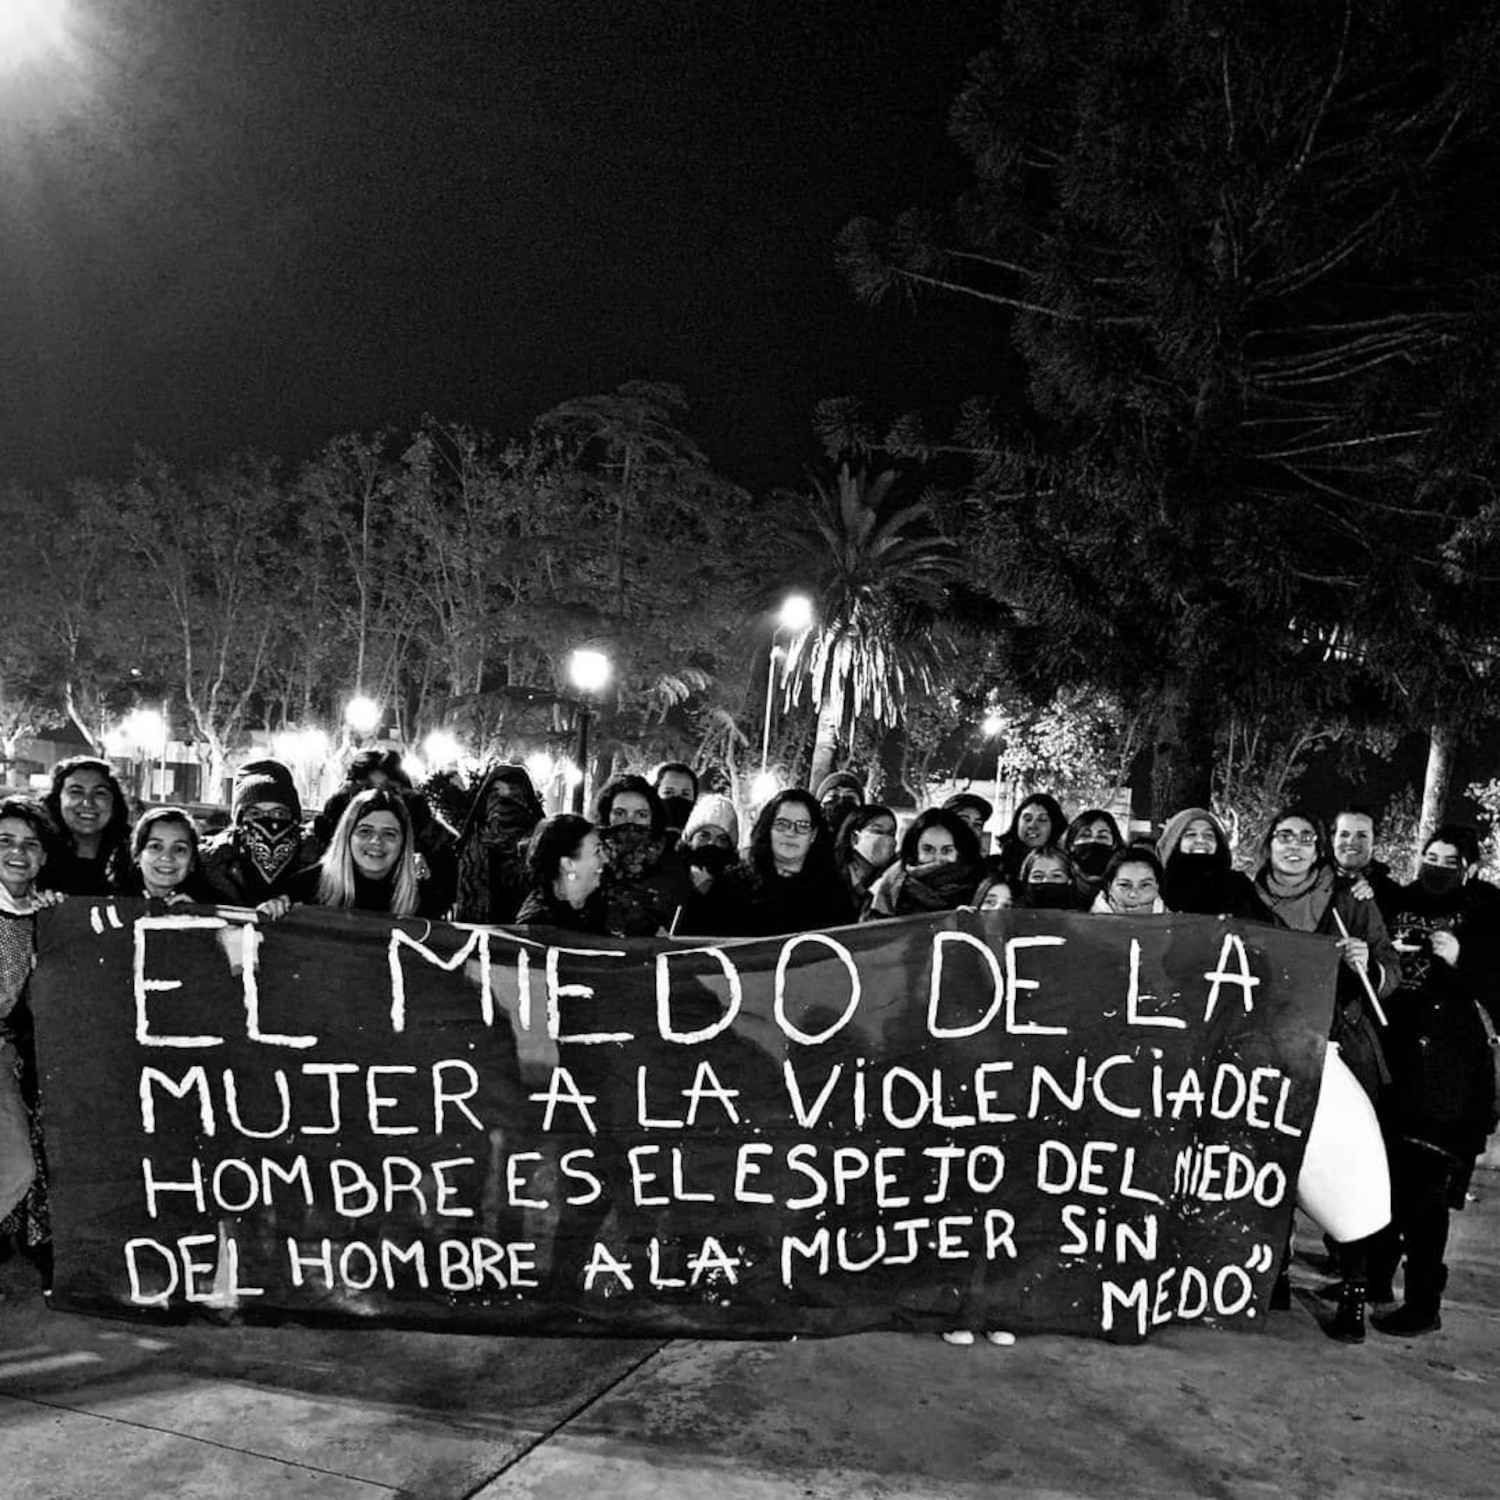 "EL MIEDO DE LA
MUJER A LA VIOLENCIA DEL
HOMBRE ES EL ESPEJO DEL MIEDO
DEL HOMBRE A LA MUJER SIN
MEDO."